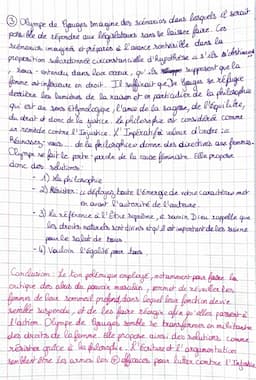 ③ Olympe de Gouges imagine des scénarios dans lesquels il serait
possible de répondre aux législateurs sans se laisser faire. Ces
scénarios imaginés et préparés à l'avance sont visible dans la
proposition subordonnée circonstancielle d'hypothèse « s'ils s'obstinaient
- sous - entendu dans leur cœur, qu'ils supposent que la
femme est inférieure en droit. Il suffirait que se réfugie
derrière les lumières de la raison et en particulier de la philosophie
qui est au sens étymologique, l'amie de la sagesse, de l'équilibre,
du droit et donc de la justice. La philosophie est considérée comme
un remède contre l'injustice. L'Impératif à valeur d'ordre
Réunissez-vous... de la philosophie » donne des directives aux femmes.
Olympe se fait le porte-parole de la cause féministe. Elle propose
donc des solutions :
- 1) La philosophie
- 2) Résister : « déployez toute l'énergie de votre caractère » met
en avant l'autorité de l'auteure.
- 3) La référence à l'Être suprême, à savoir Dieu rappelle que
les droits naturels sont divins et qu'il est important de les suivre
pour le salut de tous.
- 4) Vouloir l'égalité pour tous.
Conclusion : Le ton polémique employé, notamment pour faire la
critique des abus du pouvoir masculin, permet de réveiller les
femmes de leur sommeil profond dans lequel leur fonction devie
semble suspendu, et de les faire réagir afin qu'elles passent à
l'action. Olympe de Gouges semble se transformer en militante
des droits de la femme. Elle propose aussi des solutions comme
résister grâce à la philosophie. L'écriture et l'argumentation
semblent être les armes les ⊕ efficaces pour lutter contre l'Injustice